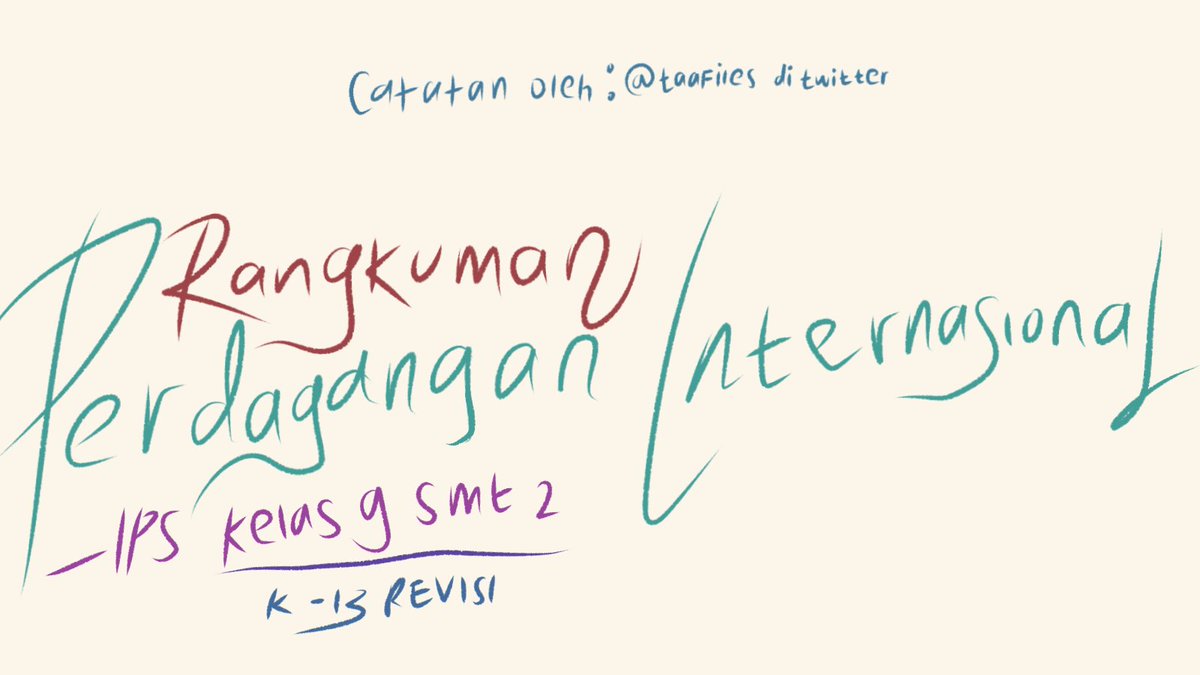 Catatan oleh : @taafiies di twitter
Rangkuman
Perdagangan Internasional
- IPS kelas 9 smt 2
K - 13 REVISI